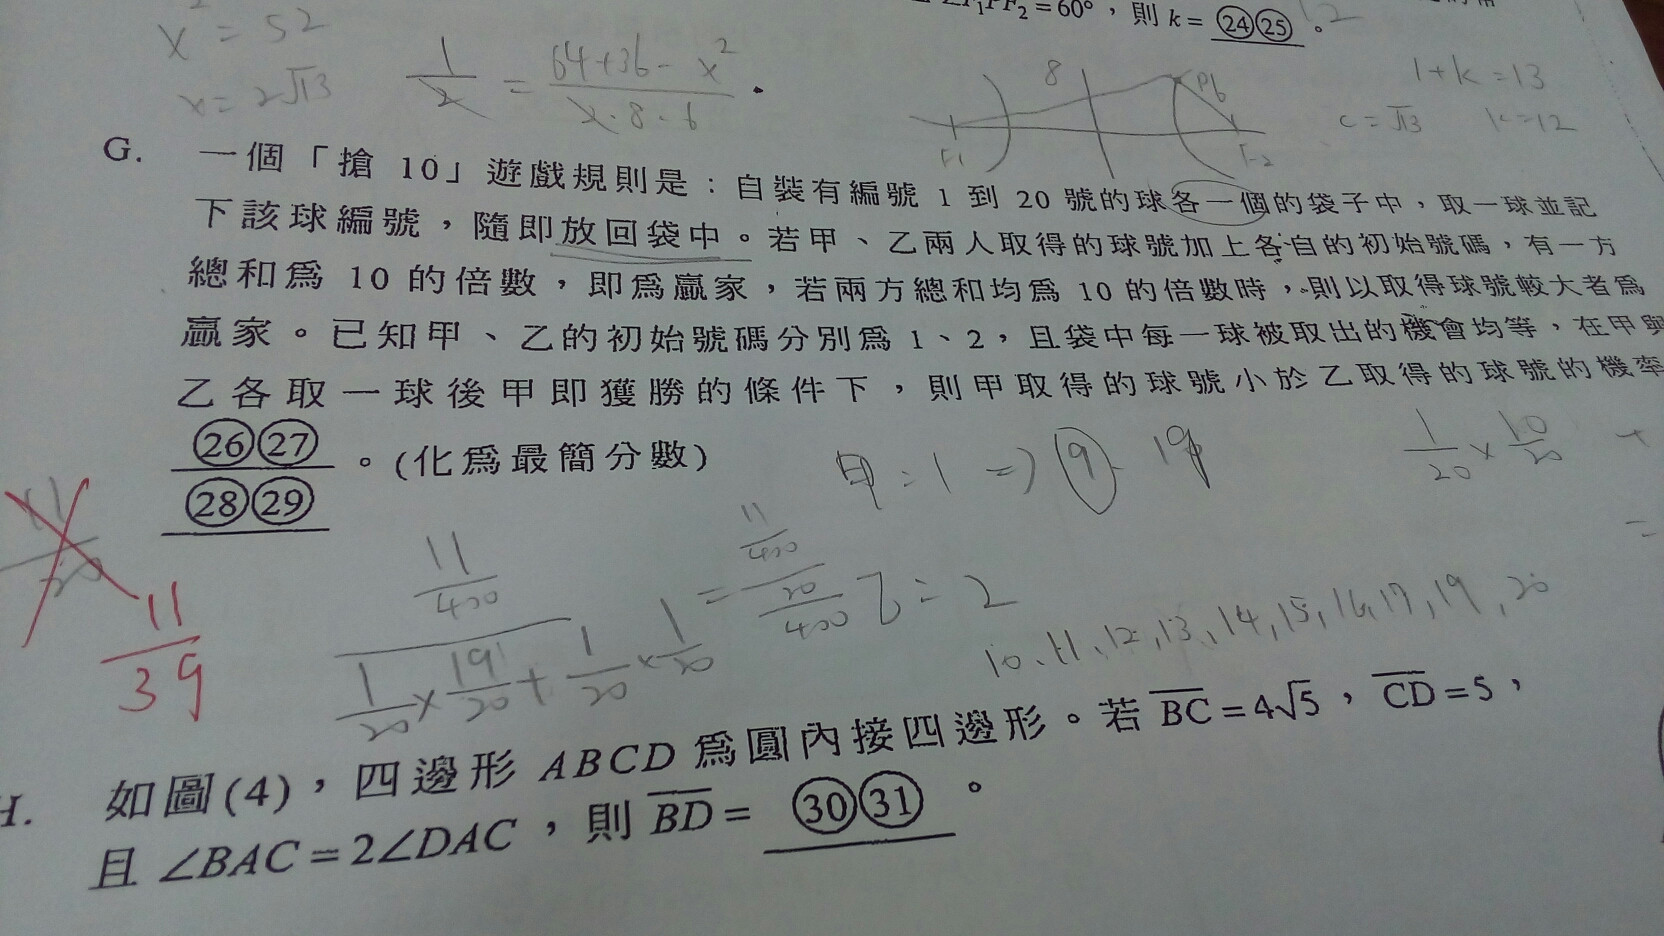 ∠F₁PF₂=60°，則 k= ㉔㉕ 。
x² = 52
x = 2√13
1/2 = (64+36-x²)/(2·8·6)
8
F1
F2
1+k=13
c=√13 k=12
G. 一個「搶 10」遊戲規則是：自裝有編號 1 到 20 號的球各一個的袋子中，取一球並記
下該球編號，隨即放回袋中。若甲、乙兩人取得的球號加上各自的初始號碼，有一方
總和為 10 的倍數，即為贏家，若兩方總和均為 10 的倍數時，則以取得球號較大者為
贏家。已知甲、乙的初始號碼分別為 1、2，且袋中每一球被取出的機會均等，在甲與
乙各取一球後甲即獲勝的條件下，則甲取得的球號小於乙取得的球號的機率
㉖㉗
㉘㉙ 。(化為最簡分數)
甲：1 ⇒ 9、19
1/20 × 10/20 +
=
11/20
11/39
(11/400)/(1/20 × 19/20 + 1/20 × 1/20) = (11/400)/(20/400)
乙：2
10、11、12、13、14、15、16、17、19、20
H. 如圖(4)，四邊形 ABCD 為圓內接四邊形。若 BC=4√5，CD=5，
且 ∠BAC=2∠DAC，則 BD= ㉚㉛ 。